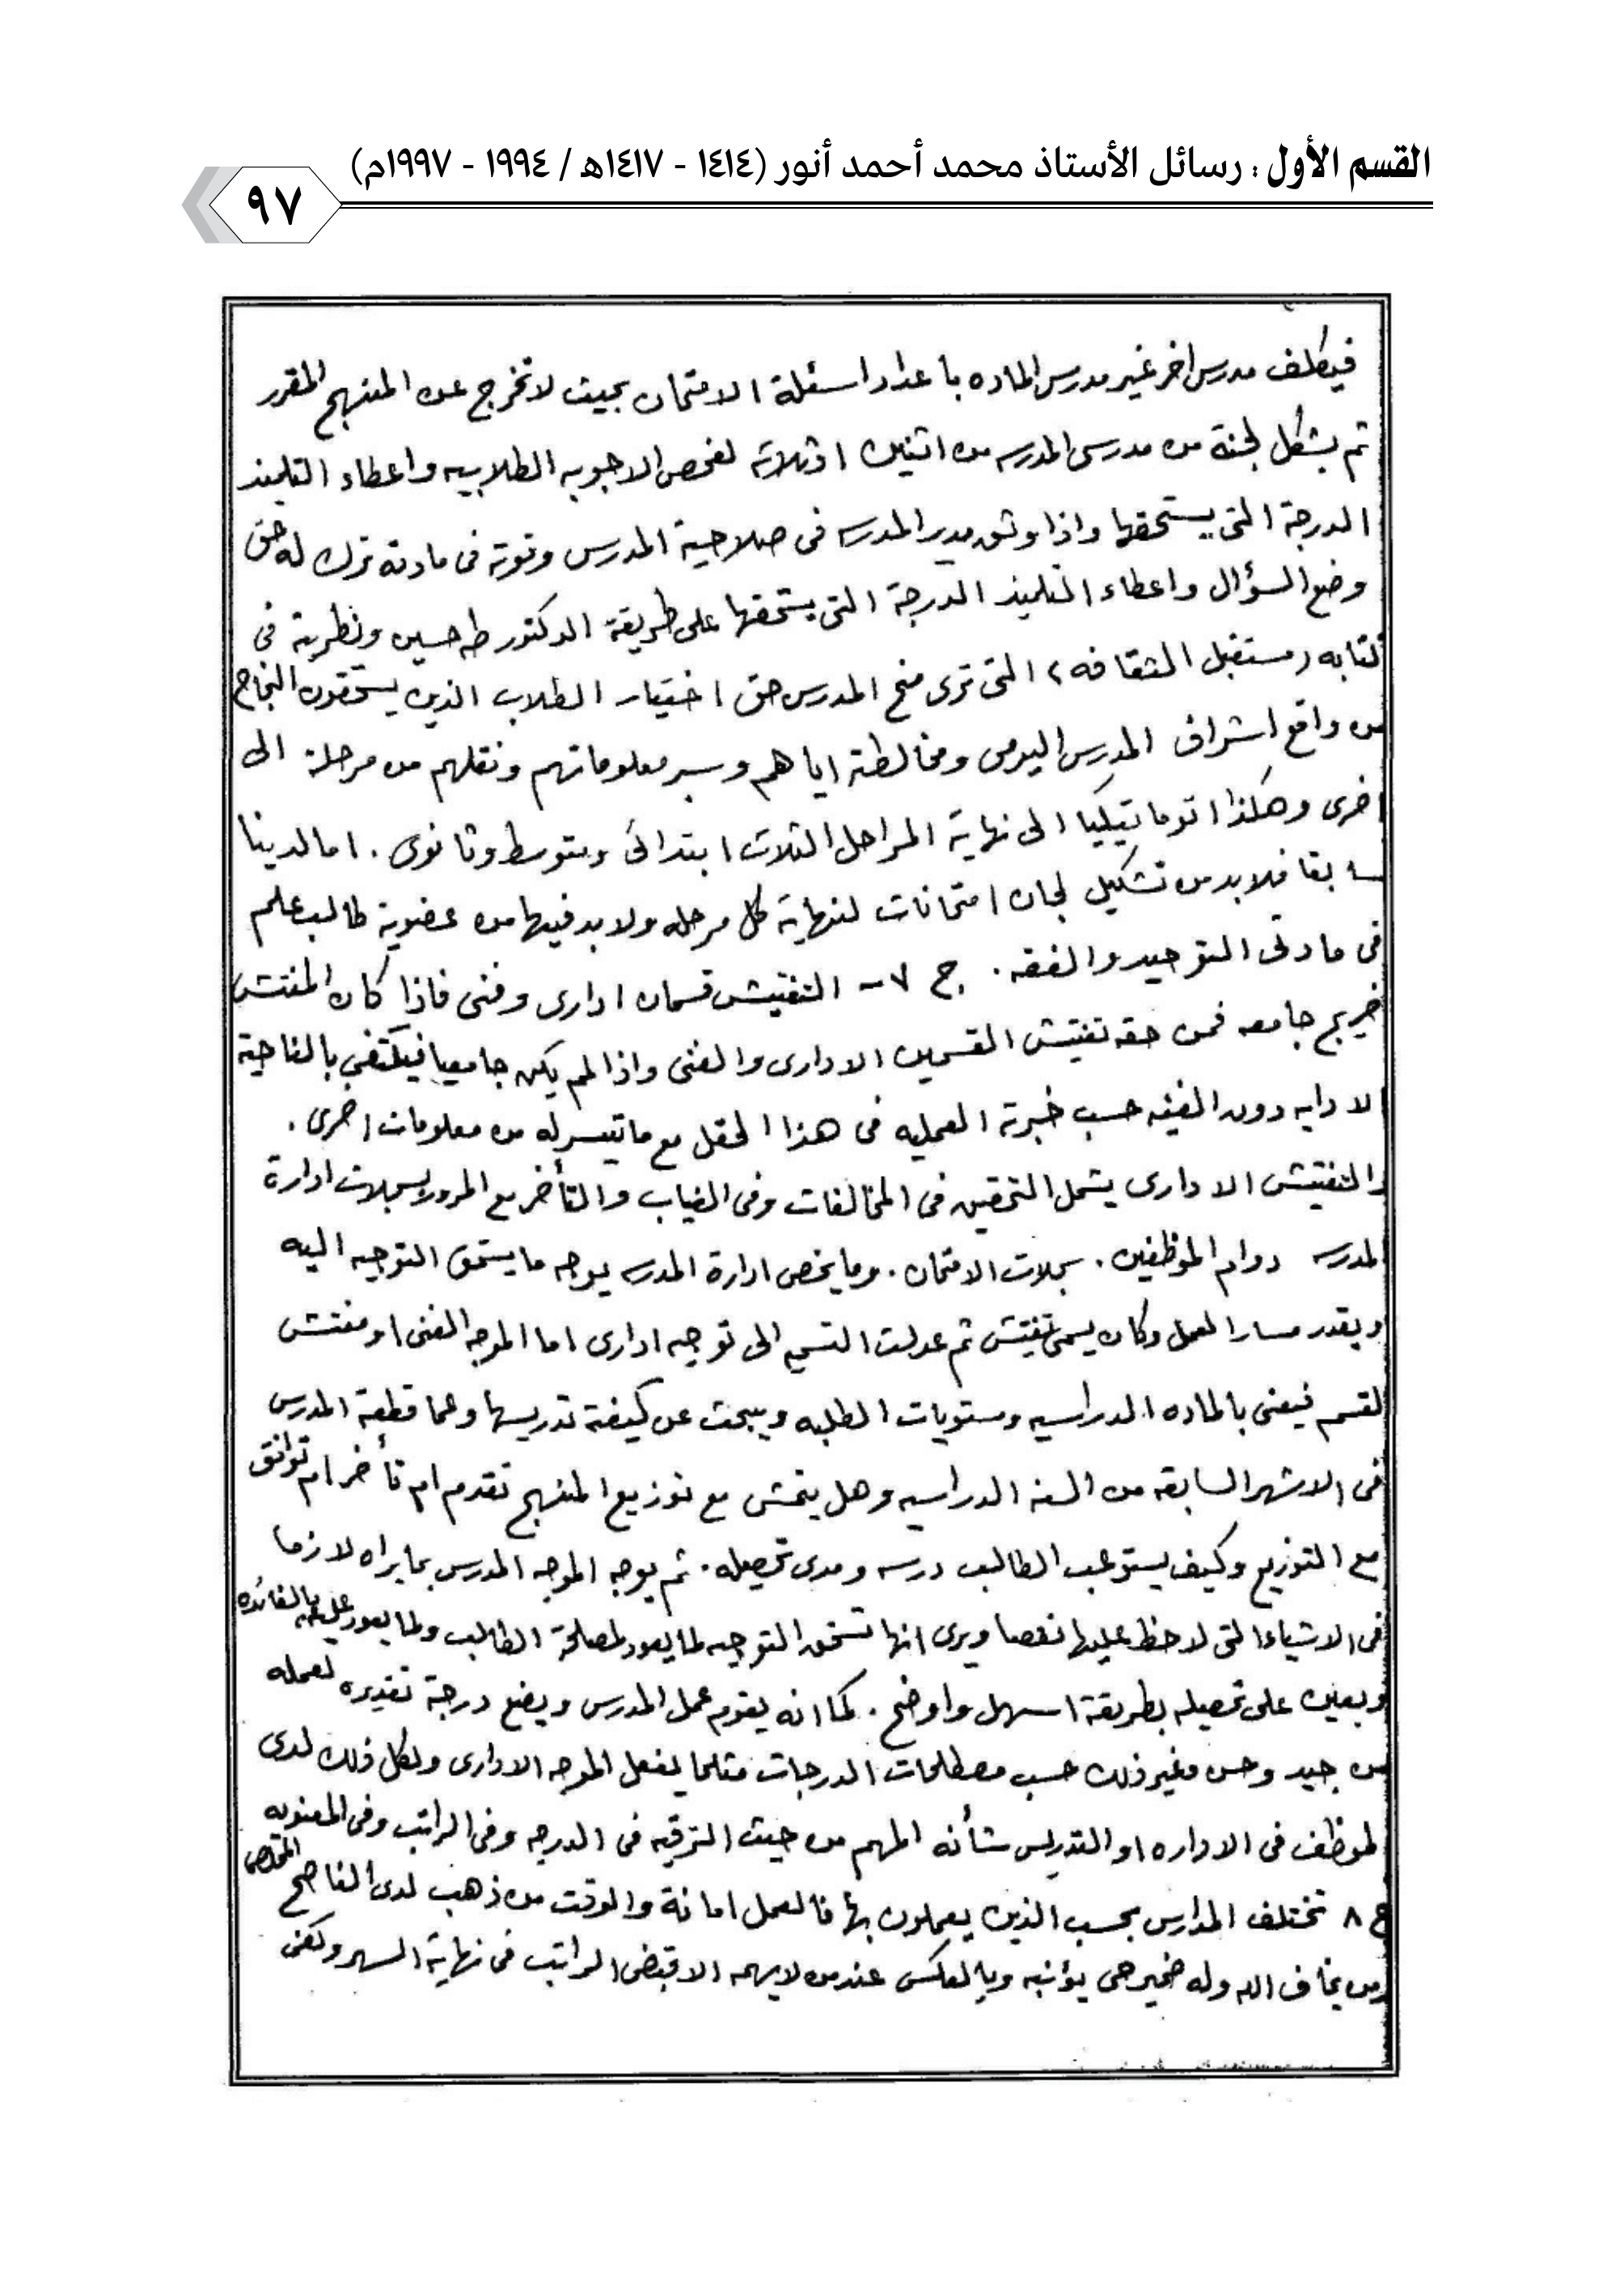 القسم الأول : رسائل الأستاذ محمد أحمد أنور (١٤١٤ - ١٤١٧هـ / ١٩٩٤ - ١٩٩٧م)
٩٧
فيكلف مدرس اخر غير مدرس الماده با عداد اسئلة الامتحان بحيث لا تخرج عن المنهج المقرر
ثم يشكل لجنة من مدرسى المدرسه من اثنين او ثلاثه لفحص الاجوبه الطلابيه واعطاء التلميذ
الدرجة التى يستحقها واذا وثق مدير المدرسه فى صلاحية المدرس وقوته فى مادته ترك له حق
وضع السؤال واعطاء التلميذ الدرجة التى يستحقها على طريقة الدكتور طه حسين ونظريته فى
كتابه (مستقبل الثقافه) التى ترى منح المدرس حق اختيار الطلاب الذين يستحقون النجاح
من واقع اشراف المدرس اليومى ومخالطته اياهم وسبر معلوماتهم ونقلهم من مرحلة الى
اخرى وهكذا اتوماتيكيا الى نهاية المراحل الثلاث ابتدائى ومتوسط وثانوى . اما لدينا
سابقا فلابد من تشكيل لجان امتحانات لنهاية كل مرحله ولابد فيها من عضوية طالب علم
فى مادتى التوحيد والفقه . ج ٧ - التفتيش قسمان ادارى وفنى فاذا كان المفتش
خريج جامعه فمن حقه تفتيش القسمين الادارى والفنى واذا لم يكن جامعيا فيكتفى بالناحية
الادايه دون الفنيه حسب خبرته العمليه فى هذا الحقل مع ما تيسر له من معلومات اخرى .
والتفتيش الادارى يشمل التحقيق فى المخالفات وفى الغياب والتأخر مع المرور لسجلات ادارة
المدرسه دوام الموظفين . سجلات الامتحان . وما يخص ادارة المدرسه يوجه ما يستحق التوجيه اليه
ويقدر مسار العمل وكان يسمى تفتيش ثم عدلت التسميه الى توجيه ادارى اما الموجه الفنى او مفتش
القسم فيعنى بالماده الدراسيه ومستويات الطلبه ويبحث عن كيفية تدريسها وعما قطعه المدرس
فى الاشهر السابقه من السنه الدراسيه وهل يتمشى مع توزيع المنهج تقدم ام تأخر ام توافق
مع التوزيع وكيف يستوعب الطالب درسه ومدى تحصيله . ثم يوجه الموجه المدرس بما يراه لازما
فى الاشياء التى لاحظ عليها نقصا ويرى انها تستحق التوجيه لما يعود لمصلحة الطالب ولما يعود عليه بالفائده
ويعين على تحصيله بطريقة اسهل واوضح . كما انه يقوم عمل المدرس ويضع درجة تقديره لعمله
من جيد وحسن وغير ذلك حسب مصطلحات الدرجات مثلما يفعل الموجه الادارى ولكل ذلك لدى
الموظف فى الاداره او التدريس شأنه المهم من حيث الترقيه فى الدرجه وفى الراتب وفى المعنويه
ج ٨ تختلف المدارس بحسب الذين يعملون بها فالعمل امانة والوقت من ذهب لدى الناصح المخلص
ومن يخاف الله وله ضمير حى يؤنبه وبالعكس عند من لايهمه الا قبض الراتب فى نهاية الشهر وكفى